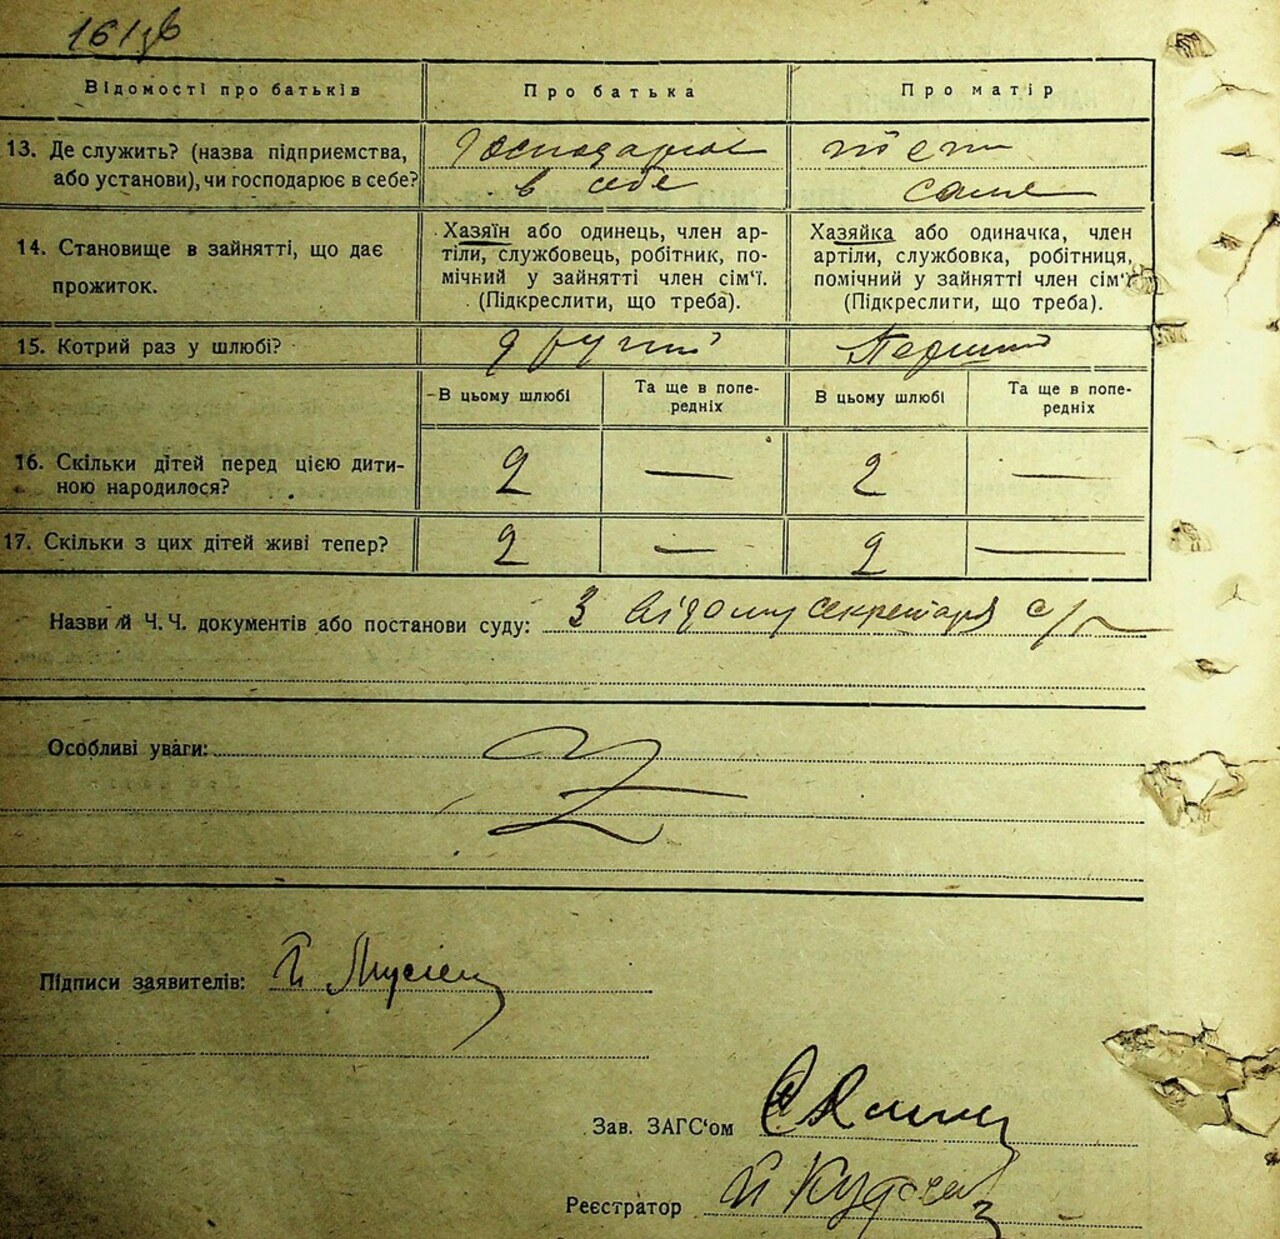 161зв
Відомості про батьків
Про батька
Про матір
13. Де служить? (назва підприємства,
або установи), чи господарює в себе?
Господарює
в себе
теж
саме
14. Становище в зайнятті, що дає
прожиток.
Хазяїн або одинець, член ар-
тіли, службовець, робітник, по-
мічний у зайнятті член сім‘ї.
(Підкреслити, що треба).
Хазяйка або одиначка, член
артіли, службовка, робітниця,
помічний у зайнятті член сім‘ї
(Підкреслити, що треба).
15. Котрий раз у шлюбі?
другий
Перший
В цьому шлюбі
Та ще в попе-
редніх
В цьому шлюбі
Та ще в попе-
редніх
16. Скільки дітей перед цією дити-
ною народилося?
2 — 2 —
17. Скільки з цих дітей живі тепер?
2 — 2 —
Назви й Ч.Ч. документів або постанови суду: З відому секретаря с/р
Особливі уваги:
Підписи заявителів:
Зав. ЗАГС‘ом
Реєстратор